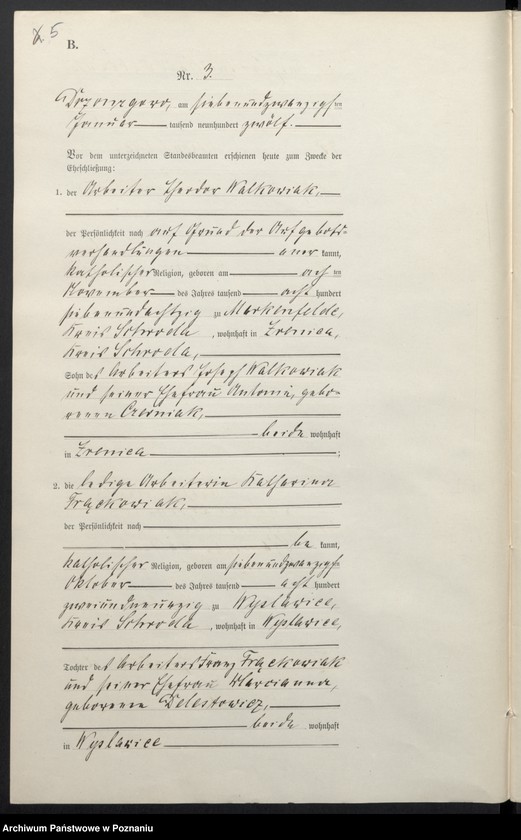 5
B.
Nr. 3.
am siebenundzwanzigsten
Januar tausend neunhundert zwölf.
Vor dem unterzeichneten Standesbeamten erschienen heute zum Zwecke der
Eheschließung:
1. der Arbeiter Theodor Walkowiak,
der Persönlichkeit nach auf Grund der Aufgebots-
verhandlungen anerkannt,
katholischer Religion, geboren am achten
November des Jahres tausend acht hundert
siebenundachtzig zu Markenfelde,
Kreis Schroda, wohnhaft in Zrenica,
Kreis Schroda,
Sohn des Arbeiters Joseph Walkowiak
und seiner Ehefrau Antonie, gebo-
renen Czerniak,
beide wohnhaft
in Zrenica;
2. die ledige Arbeiterin Katharina
Frąckowiak,
der Persönlichkeit nach
be kannt,
katholischer Religion, geboren am siebenundzwanzigsten
Oktober des Jahres tausend acht hundert
zweiundneunzig zu Wyslawice,
Kreis Schroda, wohnhaft in Wyslawice,
Tochter des Arbeiters Franz Frąckowiak
und seiner Ehefrau Marcianna,
geborenen
beide wohnhaft
in Wyslawice
Archiwum Państwowe w Poznaniu